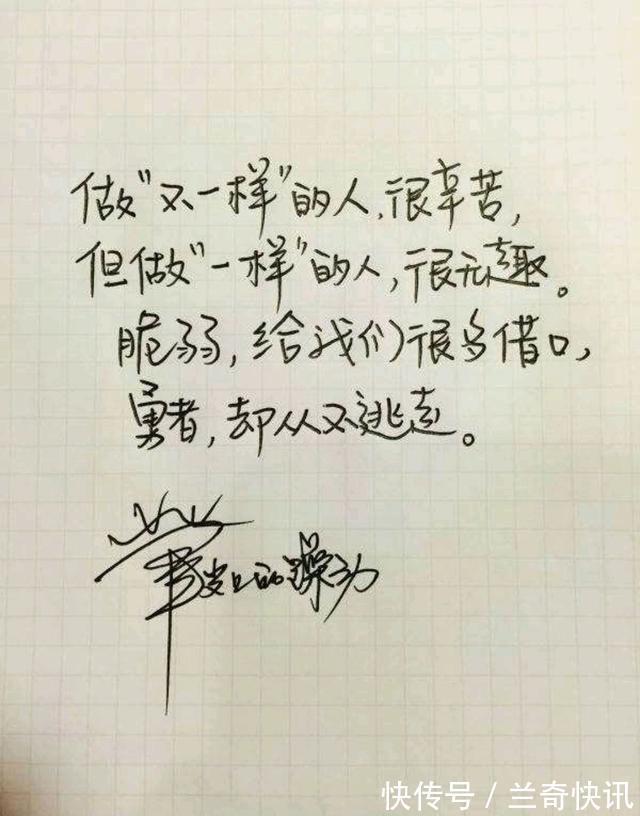 做"不一样"的人,很辛苦,
但做"一样"的人,很无趣。
脆弱,给我们很多借口,
勇者,却从不逃走。
快传号/兰奇快讯